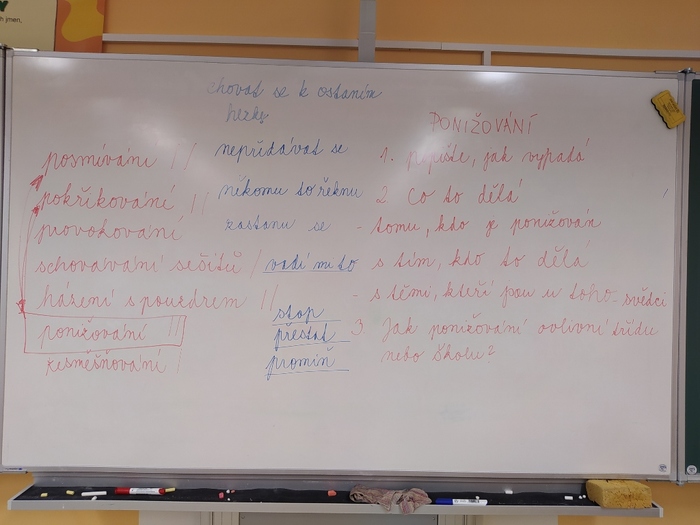 h jmen,
chovat se k ostaním
hezky
nepřidávat se
někomu to řeknu
zastanu se
vadí mi to
stop
přestat
promiň
posmívání //
pokřikování //
provokování
schovávání sešitů /
házení s pouzdrem //
ponižování //
zesměšňování /
PONIŽOVÁNÍ
1. popište, jak vypadá
2 Co to dělá
- tomu, kdo je ponižován
s tím, kdo to dělá
- s těmi, kteří jsou u toho - svědci
3 Jak ponižování ovlivní třídu
nebo školu?